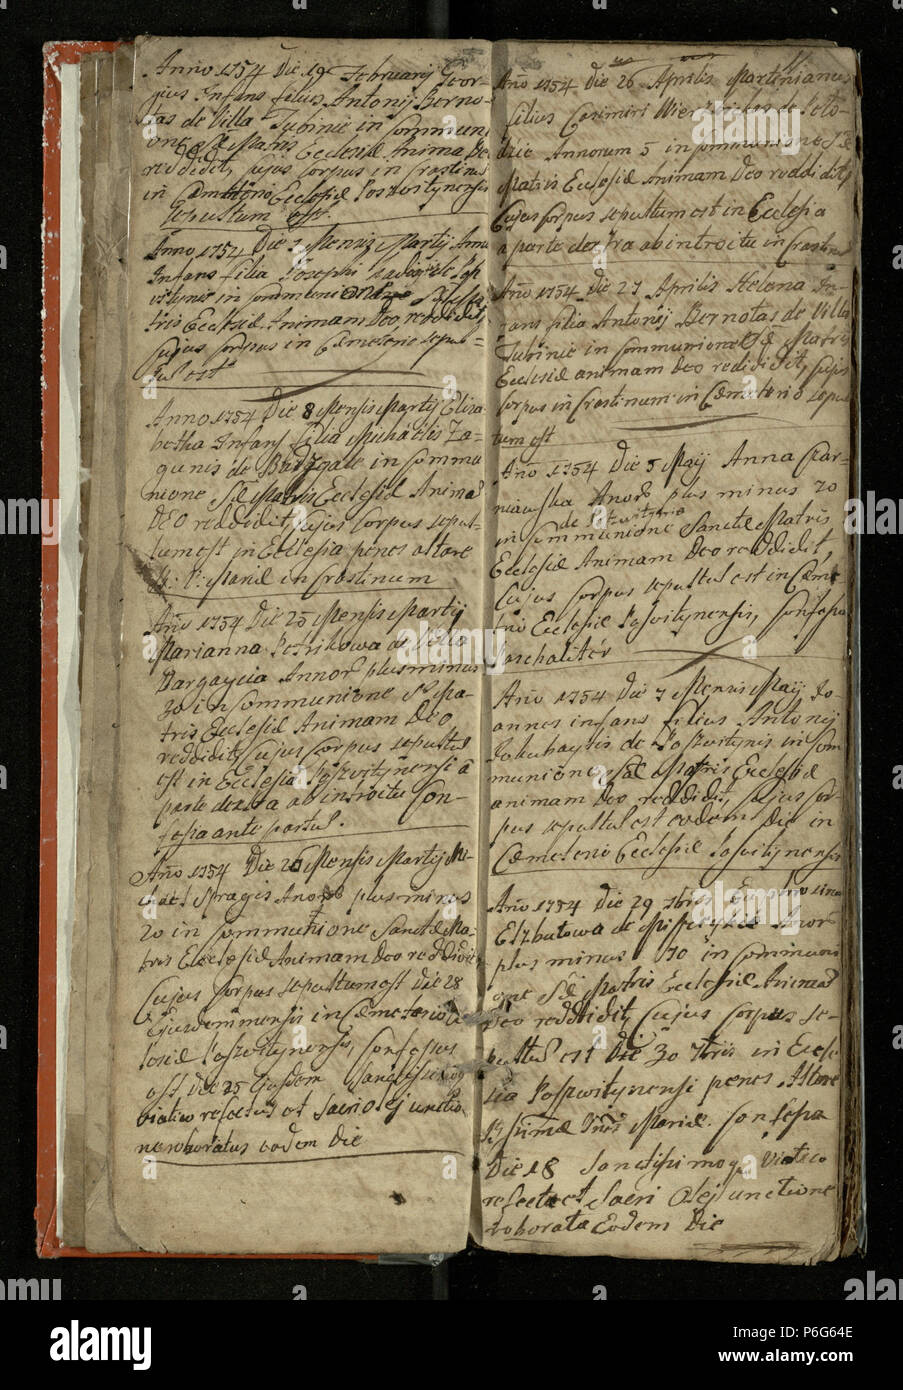 Anno 1754 Die 19 Februarij Geor-
gius Infans filius Antonij Berno-
tas de Villa Jubinie in Communi
one Sæ Matris Ecclesiæ Animã De
reddidit, Cujus Corpus in Crastinũ
in Cæmiterio Ecclesiæ Poszwitynensis
sepultum est.
Anno 1754 Die Mensis Martij Anna
Infans filia Josephi de Pos
vitynie in Communione Sæ Ma
tris Ecclesiæ Animam Deo reddidit,
Cujus Corpus in Cæmeterio sepul-
tũ est
Anno 1754 Die 8 Mensis Martij Eliza
betha Infans filia Michaelis Za-
gunis de in Commu
nione Sæ Matris Ecclesiæ Animã
DEO reddidit, Cujus Corpus sepul-
tum est in Ecclesia penes altare
B: V: Mariæ in Crastinum
Año 1754 Die 25 Mensis Martij
Marianna Petrikowa de Villa
Dargaycia Annorũ plus minus
30 in Communione Sæ Ma-
tris Ecclesiæ Animam Deo
reddidit, Cujus Corpus sepultũ
est in Ecclesia Poszwitynensi a
parte dextra ab introitu Con-
fessa ante partũ.
Año 1754 Die 26 Mensis Martij Mi-
chael Spragis Anorũ plus minus
20 in Communione Sanctæ Ma-
tris Ecclesiæ Animam Deo reddidit
Cujus Corpus sepultum est Die 28
Ejusdem mensis in Cæmeterio Ec
clesiæ Poszwitynensis, Confessus
est, Die 25 Ejusdem Sanctissimoq
viatico refectus et Sacri olej unctio
ne roboratus eodem Die
Año 1754 Die 26 Aprilis Martinianus
filius Casimiri de
Annorum 5 in Communione Sæ
Matris Ecclesiæ Animam Deo reddidit,
Cujus Corpus sepultum est in Ecclesia
a parte dextra ab introitu in Crastinũ
Año 1754 Die 27 Aprilis Helena In-
fans filia Antonij Bernotas de Villa
Jubinie in Communione Sæ Matris
Ecclesiæ animam Deo reddidit, Cujus
Corpus in Crastinum in Cæmeterio sepul
tum est
Año 1754 Die 5 Maij Anna Czar-
niawska Anorũ plus minus 20
de Poszwitynie
in Communione Sanctæ Matris
Ecclesiæ Animam Deo reddidit,
Cujus Corpus sepultũ est in Cæme
terio Ecclesiæ Poszwitynensis, Confessa
Paschaliter
Año 1754 Die 7 Mensis Maij Jo-
annes infans filius Antonij
Jakubaytis de Poszwitynis in Com
munione Sæ Matris Ecclesiæ
animam Deo reddidit, Cujus Cor-
pus sepultũ est eodem Die in
Cæmeterio Ecclesiæ Poszwitynensis
Año 1754 Die 29 7bris
Elzbutowa de Anorũ
plus minus 70 in Communi
one Sæ Matris Ecclesiæ Animã
Deo reddidit, Cujus Corpus se-
pultũ est Die 30 7bris in Eccle
sia Poszwitynensi penes Altare
Mariæ. Confessa
Die 18 Sanctissimoq Viatico
refecta et Sacri Olej unctione
roborata Eodem Die
alamy
alamy
Image ID: P6G64E
www.alamy.com